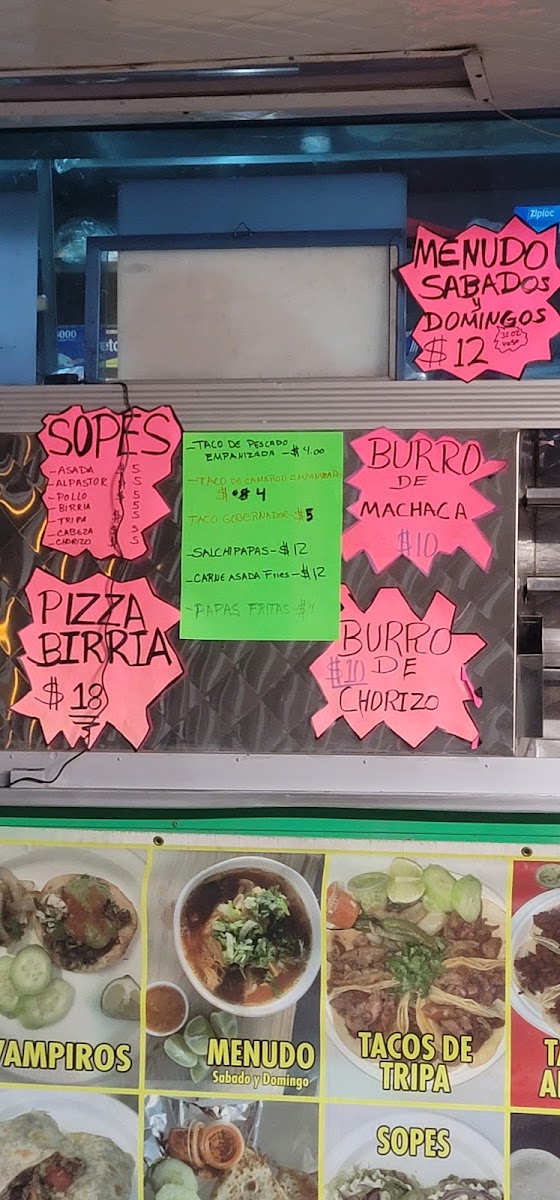 Ziploc
MENUDO
SABADOS
Y
DOMINGOS
$12
32 OZ
VASO
SOPES
-ASADA 5
-ALPASTOR 5
-POLLO 5
-BIRRIA 5
-TRIPA 5
-CABEZA 5
-CHORIZO 5
-TACO DE PESCADO
EMPANIZADA -$4.00
-TACO DE CAMAROD EMPANIZADO
$4
TACO GOBERNADOR-$5
-SALCHIPAPAS-$12
-CARNE ASADA Fries-$12
-PAPAS FRITAS-$4
BURRO
DE
MACHACA
$10
PIZZA
BIRRIA
$18
BURRO
$10 DE
CHORIZO
VAMPIROS
MENUDO
Sabado y Domingo
TACOS DE
TRIPA
SOPES